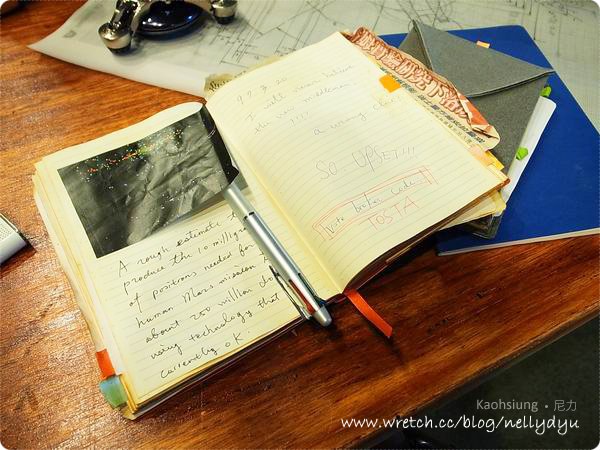 A rough estimate to
produce the 10 milligrams
of positrons needed for
human Mars mission is
about 250 million do
using technology that
currently ok.
99.7.20
I will never believe
the new millennium
!!!!
a wrong
SO UPSET!!!
TOSTA
Kaohsiung • 尼力
www.wretch.cc/blog/nellydyu